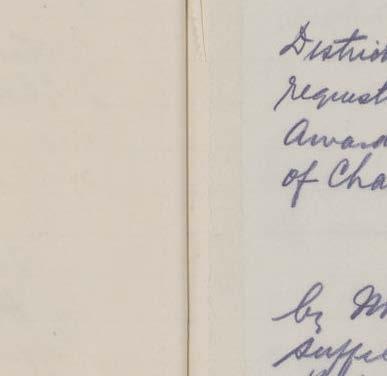 Distric
request
Award
of Cha
by M
suffic